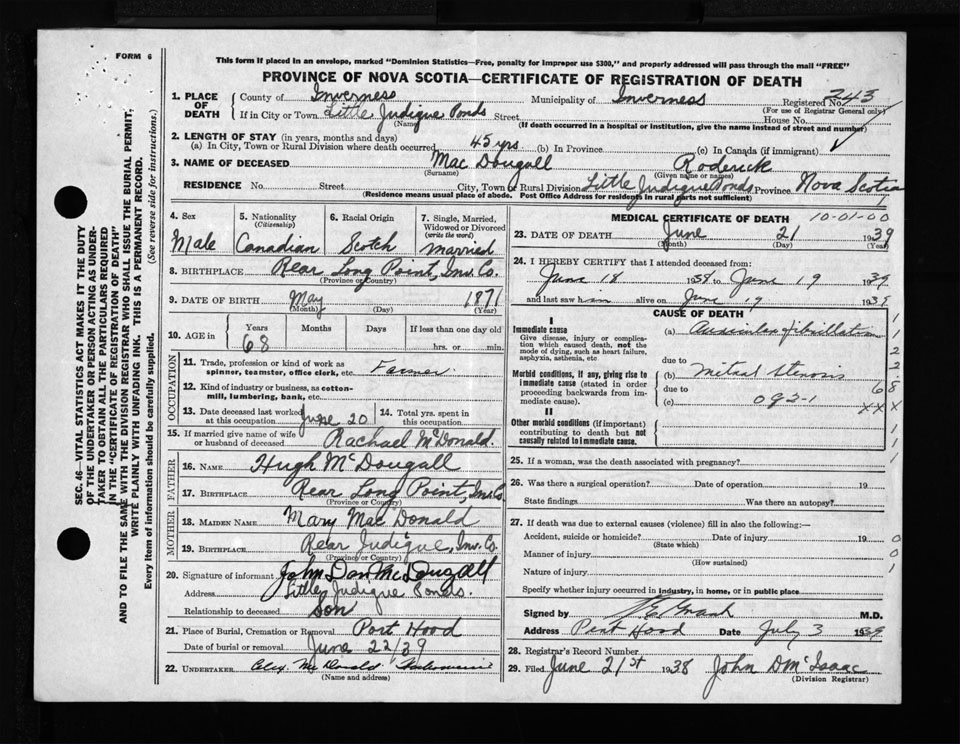 FORM 6
This form if placed in an envelope, marked "Dominion Statistics—Free, penalty for improper use $300," and properly addressed will pass through the mail "FREE"
PROVINCE OF NOVA SCOTIA—CERTIFICATE OF REGISTRATION OF DEATH
1. PLACE OF DEATH
County of Inverness Municipality of Inverness Registered No. 343
(For use of Registrar General only)
If in City or Town Little Judique Ponds Street House No.
(Name) (If death occurred in a hospital or institution, give the name instead of street and number)
2. LENGTH OF STAY (in years, months and days)
(a) In City, Town or Rural Division where death occurred 45 yrs. (b) In Province (c) In Canada (if immigrant)
3. NAME OF DECEASED Mac Dougall Roderick
(Surname) (Given name or names)
RESIDENCE No. Street City, Town or Rural Division Little Judique Ponds Province Nova Scotia
(Residence means usual place of abode. Post Office Address for residents in rural parts not sufficient)
4. Sex
Male
5. Nationality
(Citizenship)
Canadian
6. Racial Origin
Scotch
7. Single, Married, Widowed or Divorced
(write the word)
Married
8. BIRTHPLACE Rear Long Point, Inv. Co.
(Province or Country)
9. DATE OF BIRTH May 1871
(Month) (Day) (Year)
10. AGE in
Years Months Days If less than one day old
68 hrs. or min.
OCCUPATION
11. Trade, profession or kind of work as
spinner, teamster, office clerk, etc. Farmer
12. Kind of industry or business, as cotton-
mill, lumbering, bank, etc.
13. Date deceased last worked at this occupation June 20
14. Total yrs. spent in this occupation
15. If married give name of wife or husband of deceased Rachael McDonald.
FATHER
16. NAME Hugh McDougall
17. BIRTHPLACE Rear Long Point, Inv. Co.
(Province or Country)
MOTHER
18. MAIDEN NAME Mary Mac Donald
19. BIRTHPLACE Rear Judique, Inv. Co.
(Province or Country)
20. Signature of informant John Dan McDougall
Address Little Judique Ponds.
Relationship to deceased Son
21. Place of Burial, Cremation or Removal Port Hood
Date of burial or removal June 22/39
22. UNDERTAKER Alex. McDonald
(Name and address)
MEDICAL CERTIFICATE OF DEATH 10-01-00
23. DATE OF DEATH June 21 1939
(Month) (Day) (Year)
24. I HEREBY CERTIFY that I attended deceased from:
June 18 1938 to June 19 1939
and last saw him alive on June 19 1939
CAUSE OF DEATH
I
Immediate cause
Give disease, injury or complication which caused death, not the mode of dying, such as heart failure, asphyxia, asthenia, etc.
(a) Auricular fibrillation
due to
Morbid conditions, if any, giving rise to immediate cause (stated in order proceeding backwards from immediate cause).
(b) Mitral Stenosis
due to
(c) 092-1
II
Other morbid conditions (if important) contributing to death but not causally related to immediate cause.
25. If a woman, was the death associated with pregnancy?
26. Was there a surgical operation? Date of operation 19
State findings Was there an autopsy?
27. If death was due to external causes (violence) fill in also the following:—
Accident, suicide or homicide? Date of injury 19
(State which)
Manner of injury
(How sustained)
Nature of injury
Specify whether injury occurred in industry, in home, or in public place
Signed by M.D.
Address Port Hood Date July 3 1939
28. Registrar's Record Number
29. Filed June 21st 1938 John D McIsaac
(Division Registrar)
SEC. 46—VITAL STATISTICS ACT MAKES IT THE DUTY
OF THE UNDERTAKER OR PERSON ACTING AS UNDER-
TAKER TO OBTAIN ALL THE PARTICULARS REQUIRED
IN THE "CERTIFICATE OF REGISTRATION OF DEATH"
AND TO FILE THE SAME WITH THE DIVISION REGISTRAR WHO SHALL ISSUE THE BURIAL PERMIT,
WRITE PLAINLY WITH UNFADING INK. THIS IS A PERMANENT RECORD.
Every item of information should be carefully supplied. (See reverse side for instructions.)